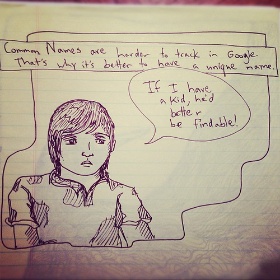 Common Names are harder to track in Google.
That's why it's better to have a unique name.
If I have
a kid, he'd
better
be findable!